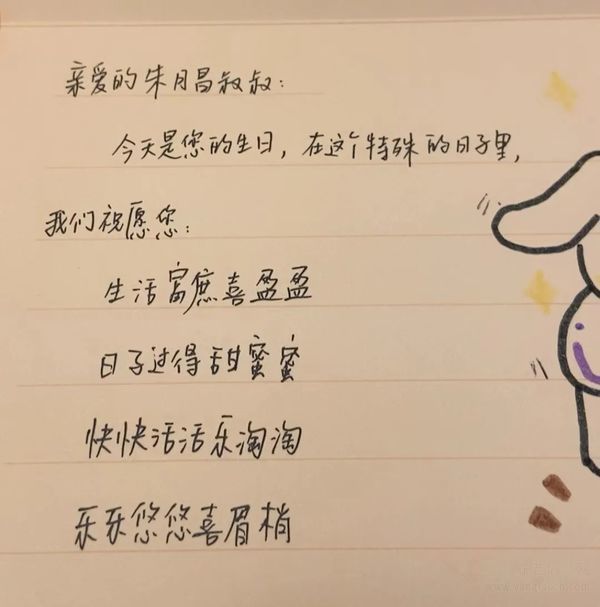 亲爱的朱月昌叔叔：
今天是您的生日，在这个特殊的日子里，
我们祝愿您：
生活富庶喜盈盈
日子过得甜蜜蜜
快快活活乐淘淘
乐乐悠悠喜眉梢